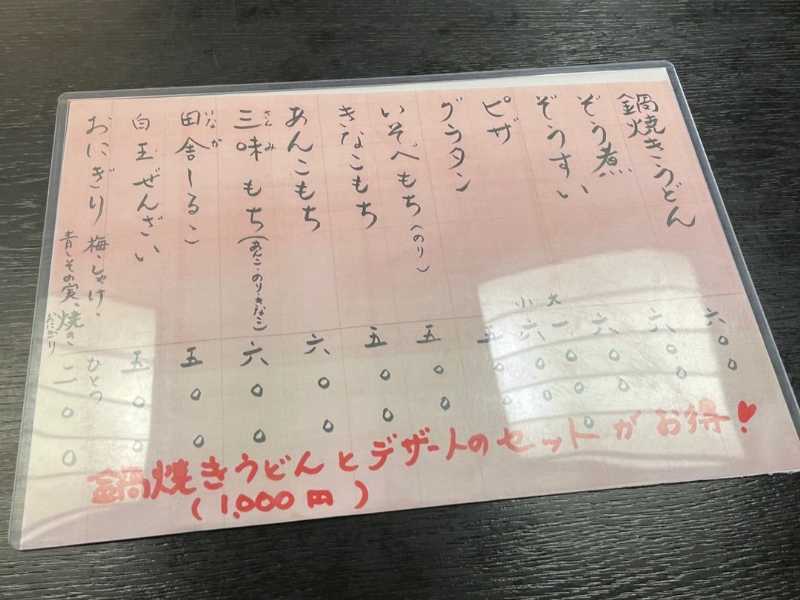 鍋焼きうどん 六〇〇
ぞう煮 六〇〇
ぞうすい 六〇〇
ピザ 大 一〇〇〇
小 六〇〇
グラタン 五〇〇
いそべもち(のり) 五〇〇
きなこもち 五〇〇
あんこもち 六〇〇
三味もち(あんこ・のり・きなこ) 六〇〇
さんみ
田舎しるこ 五〇〇
いなか
白玉ぜんざい 五〇〇
おにぎり 梅・しゃけ・ ひとつ
青しその実、焼き 二〇〇
おにぎり
鍋焼きうどんとデザートのセットがお得!♥
(1,000円)